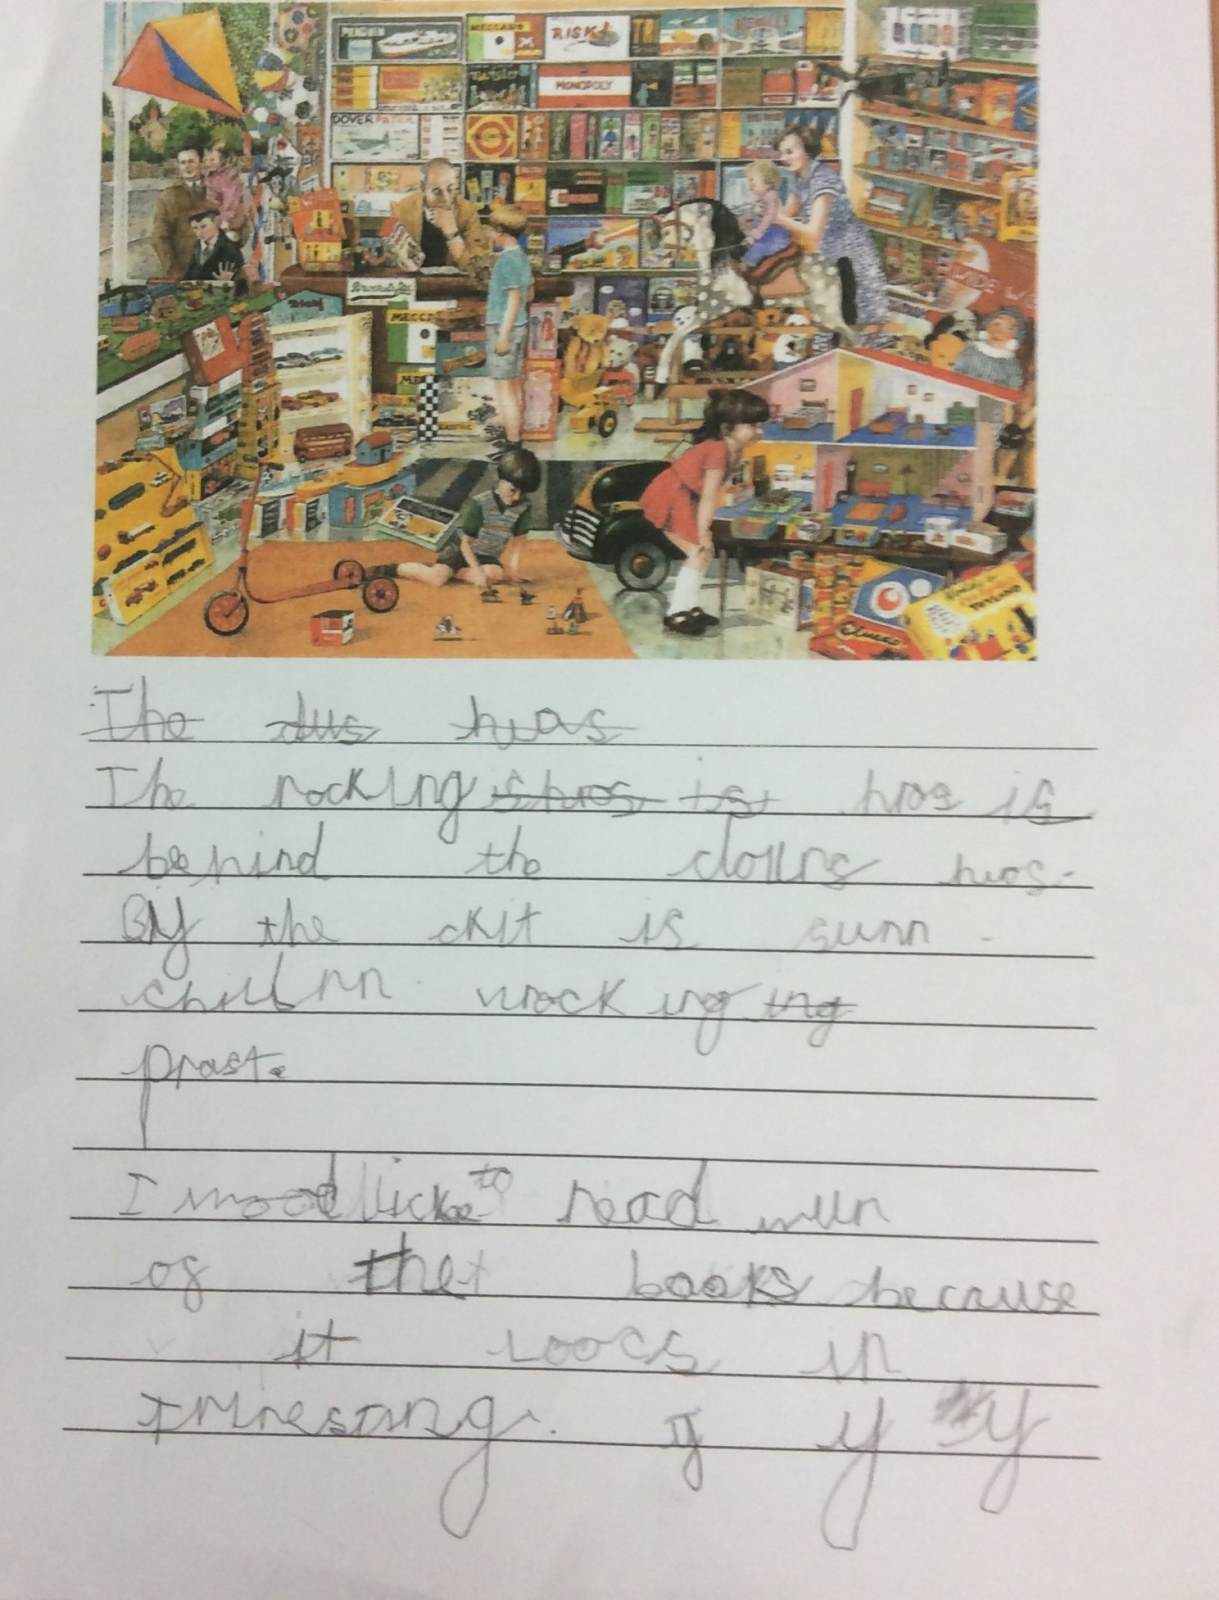 MECCANO
RISK
MONOPOLY
DOVER PATROL
The dus has
The rocking shros ist hros is
behind the dollrs hros.
By the ckit is sunn
chillrnn wrocking ing
prast.
I wood licke to read wun
of thet books because
it loocs in
trresting. If y y